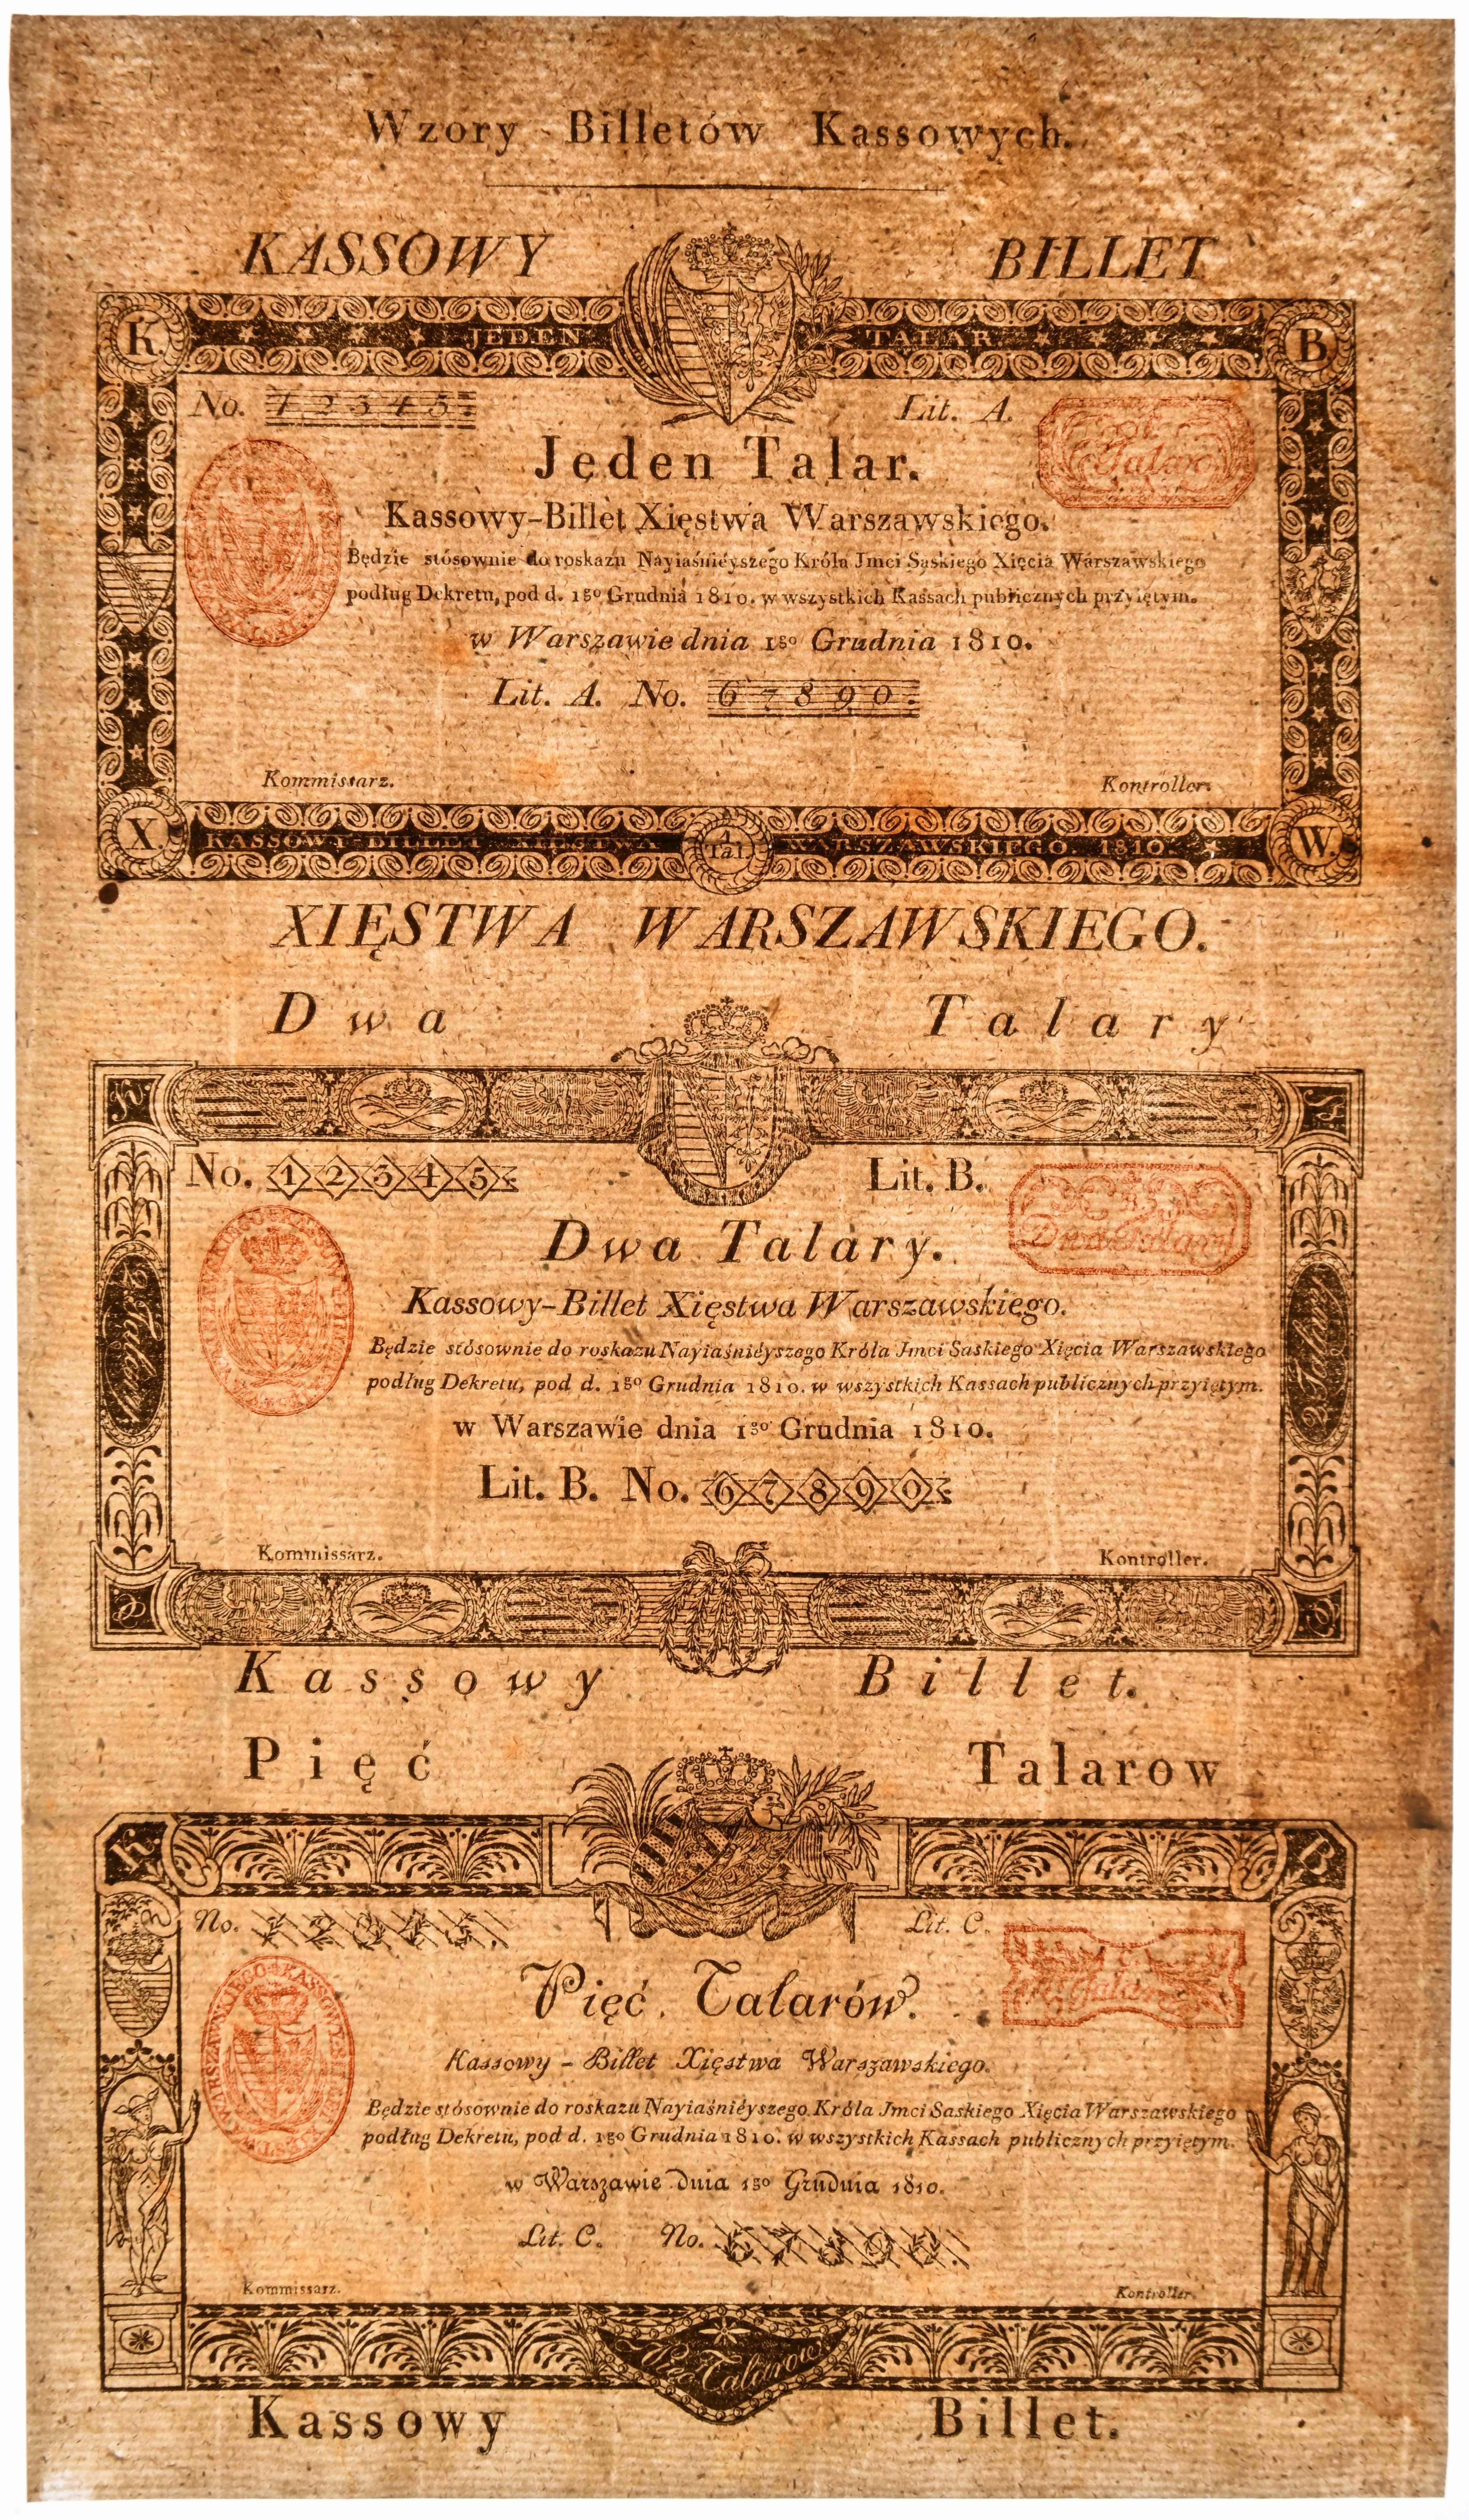 Wzory Billetów Kassowych.
KASSOWY BILLET
K. JEDEN TALAR B.
No. 12345. Lit. A.
Talar
Jeden Talar.
Kassowy-Billet Xięstwa Warszawskiego.
Będzie stósownie do roskazu Nayiaśnićyszego Króla Jmci Saskiego Xięcia Warszawskiego
podług Dekretu, pod d. 1go Grudnia 1810. w wszystkich Kassach publicznych przyiętym.
w Warszawie dnia 1go Grudnia 1810.
Lit. A. No. 67890.
Kommissarz. Kontroller.
X. KASSOWY BILLET XIĘSTWA 1 Tal. WARSZAWSKIEGO. 1810. W.
XIĘSTWA WARSZAWSKIEGO.
Dwa Talary
No. 12345. Lit. B.
Dwa Talary
Dwa Talary.
2. Talary 2. Talary
Kassowy-Billet Xięstwa Warszawskiego.
Będzie stósownie do roskazu Nayiaśnićyszego Króla Jmci Saskiego Xięcia Warszawskiego
podług Dekretu, pod d. 1go Grudnia 1810. w wszystkich Kassach publicznych przyiętym.
w Warszawie dnia 1go Grudnia 1810.
Lit. B. No. 67890.
Kommissarz. Kontroller.
Kassowy Billet.
Pięć Talarow
K. B.
No. 12345. Lit. C.
Pięć Talarów.
XIĘSTWA WARSZAWSKIEGO KASSOWY BILLET
Kassowy - Billet Xięstwa Warszawskiego.
Będzie stósownie do roskazu Nayiaśnićyszego Króla Jmci Saskiego Xięcia Warszawskiego
podług Dekretu, pod d. 1go Grudnia 1810. w wszystkich Kassach publicznych przyiętym.
w Warszawie dnia 1go Grudnia 1810.
Lit. C. No. 67890.
Kommissarz. Kontroller.
Pięć Talarow
Kassowy Billet.